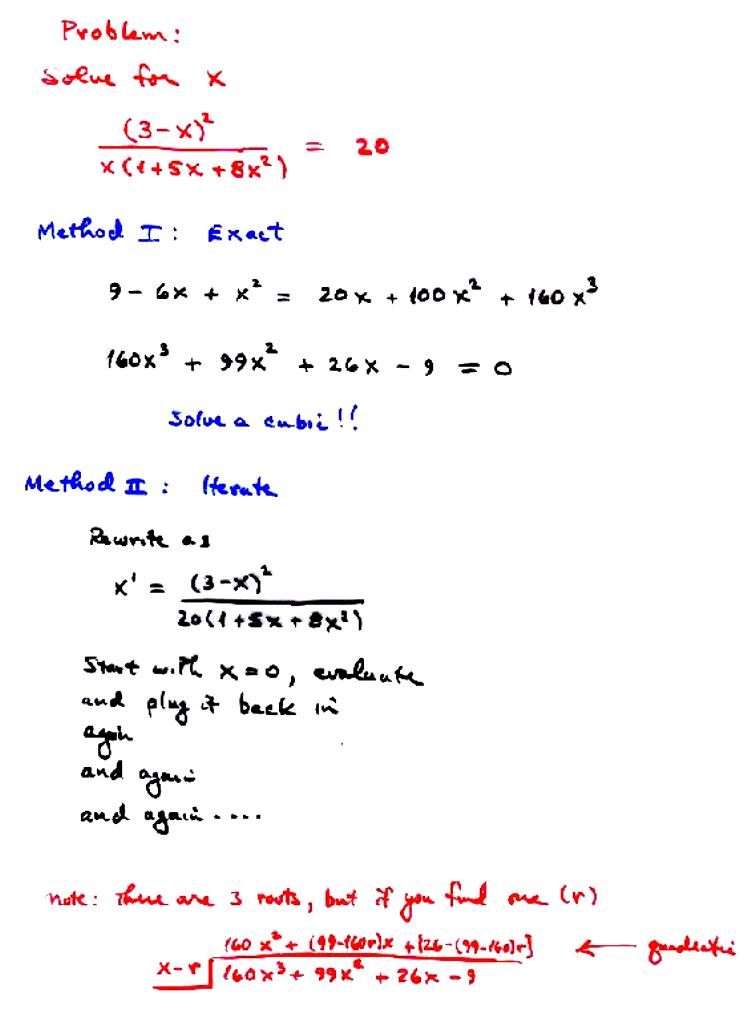 Problem:
Solve for x
(3-x)²
x(1+5x+8x²) = 20
Method I: Exact
9 - 6x + x² = 20x + 100x² + 160x³
160x³ + 99x² + 26x - 9 = 0
Solve a cubic!!
Method II: Iterate
Rewrite as
x' = (3-x)²
20(1+5x+8x²)
Start with x=0, evaluate
and plug it back in
again
and again
and again....
note: There are 3 roots, but if you find one (r)
160x² + (99-160r)x + [26-(99-160)r] ← quadratic
x-r 160x³ + 99x² + 26x - 9